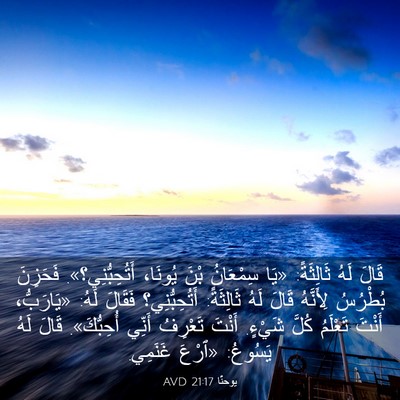 قَالَ لَهُ ثَالِثَةً: «يَا سِمْعَانُ بْنَ يُونَا، أَتُحِبُّنِي؟». فَحَزِنَ
بُطْرُسُ لِأَنَّهُ قَالَ لَهُ ثَالِثَةً: أَتُحِبُّنِي؟ فَقَالَ لَهُ: «يَارَبُّ،
أَنْتَ تَعْلَمُ كُلَّ شَيْءٍ. أَنْتَ تَعْرِفُ أَنِّي أُحِبُّكَ». قَالَ لَهُ
يَسُوعُ: «ٱرْعَ غَنَمِي.
يوحنَّا 21:17 AVD